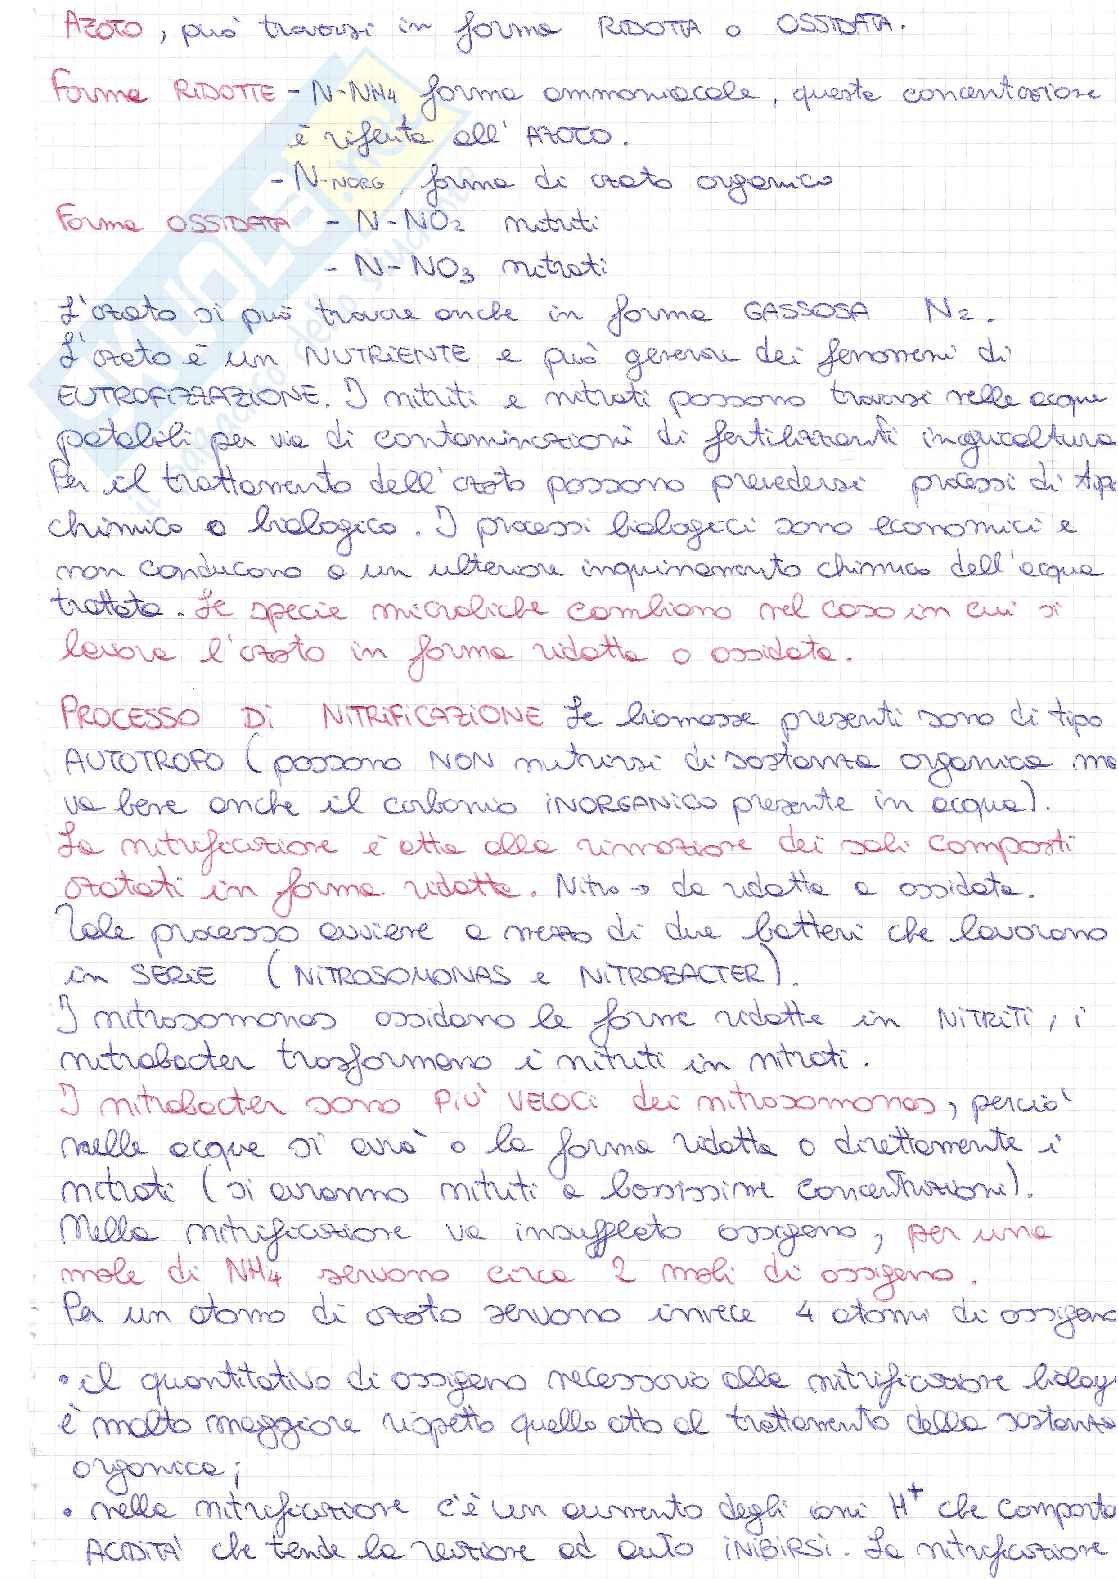 AZOTO, può trovarsi in forma RIDOTTA o OSSIDATA.
Forme RIDOTTE - N-NH4 forma ammoniacale, queste concentrazione
è riferita all' AZOTO.
- N-NORG, forma di azoto organico
Forme OSSIDATA - N-NO2 nitriti
- N-NO3 nitrati
L'azoto si può trovare anche in forma GASSOSA N2.
L'azoto è un NUTRIENTE e può generare dei fenomeni di
EUTROFIZZAZIONE. I nitriti e nitrati possono trovarsi nelle acque
potabili per via di contaminazioni di fertilizzanti in agricoltura
Per il trattamento dell'azoto possono prevedersi processi di tipo
chimico o biologico. I processi biologici sono economici e
non conducono a un ulteriore inquinamento chimico dell'acqua
trattata. Le specie microbiche cambiano nel caso in cui si
lavora l'azoto in forma ridotta o ossidata.
PROCESSO DI NITRIFICAZIONE Le biomasse presenti sono di tipo
AUTOTROFO (possono NON nutrirsi di sostanza organica ma
va bene anche il carbonio INORGANICO presente in acqua).
La nitrificazione è atta alla rimozione dei soli composti
azotati in forma ridotta. Nitro → da ridotta a ossidata.
Tale processo avviene a mezzo di due batteri che lavorano
in SERIE (NITROSOMONAS e NITROBACTER).
I nitrosomonas ossidano le forme ridotte in NITRITI, i
nitrobacter trasformano i nitriti in nitrati.
I nitrobacter sono PIÙ VELOCI dei nitrosomonas, perciò
nelle acque si avrà o la forma ridotta o direttamente i
nitrati (si avranno nitriti a bassissime concentrazioni).
Nella nitrificazione va insufflato ossigeno, per una
mole di NH4 servono circa 2 moli di ossigeno.
Per un atomo di azoto servono invece 4 atomi di ossigeno
• il quantitativo di ossigeno necessario alla nitrificazione biologi
è molto maggiore rispetto quello atto al trattamento della sostanza
organica;
• nella nitrificazione c'è un aumento degli ioni H+ che comporta
ACIDITA' che tende la reazione ad auto INIBIRSI. La nitrificazione